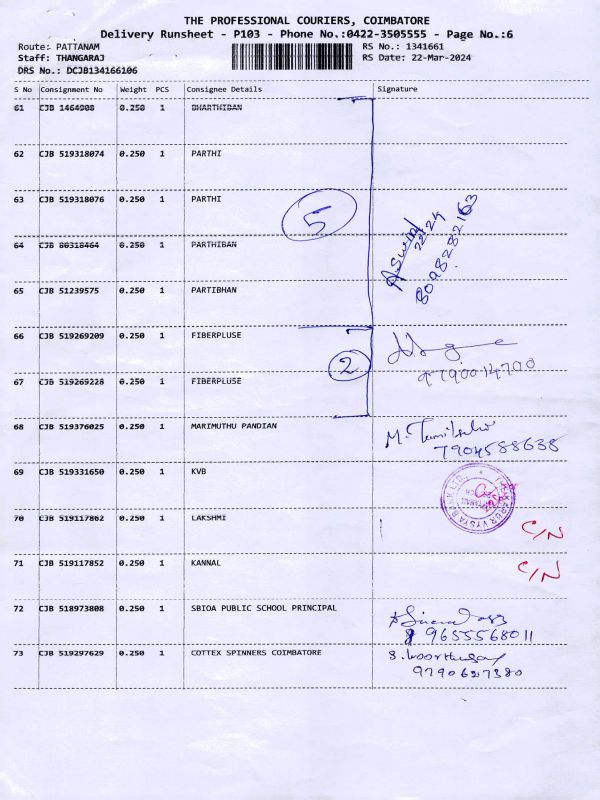 THE PROFESSIONAL COURIERS, COIMBATORE
Delivery Runsheet - P103 - Phone No.:0422-3505555 - Page No.:6
Route: PATTANAM RS No.: 1341661
Staff: THANGARAJ RS Date: 22-Mar-2024
DRS No.: DCJB134166106
S No Consignment No Weight PCS Consignee Details Signature
61 CJB 1464908 0.250 1 BHARTHIBAN
62 CJB 519318074 0.250 1 PARTHI
63 CJB 519318076 0.250 1 PARTHI
5
64 CJB 80318464 0.250 1 PARTHIBAN
8098282163
65 CJB 51239575 0.250 1 PARTIBHAN
66 CJB 519269209 0.250 1 FIBERPLUSE
2
67 CJB 519269228 0.250 1 FIBERPLUSE 9790014700
68 CJB 519376025 0.250 1 MARIMUTHU PANDIAN
7904588638
69 CJB 519331650 0.250 1 KVB
70 CJB 519117862 0.250 1 LAKSHMI C/N
71 CJB 519117852 0.250 1 KANNAL C/N
72 CJB 518973808 0.250 1 SBIOA PUBLIC SCHOOL PRINCIPAL
9655568011
73 CJB 519297629 0.250 1 COTTEX SPINNERS COIMBATORE
9790627380